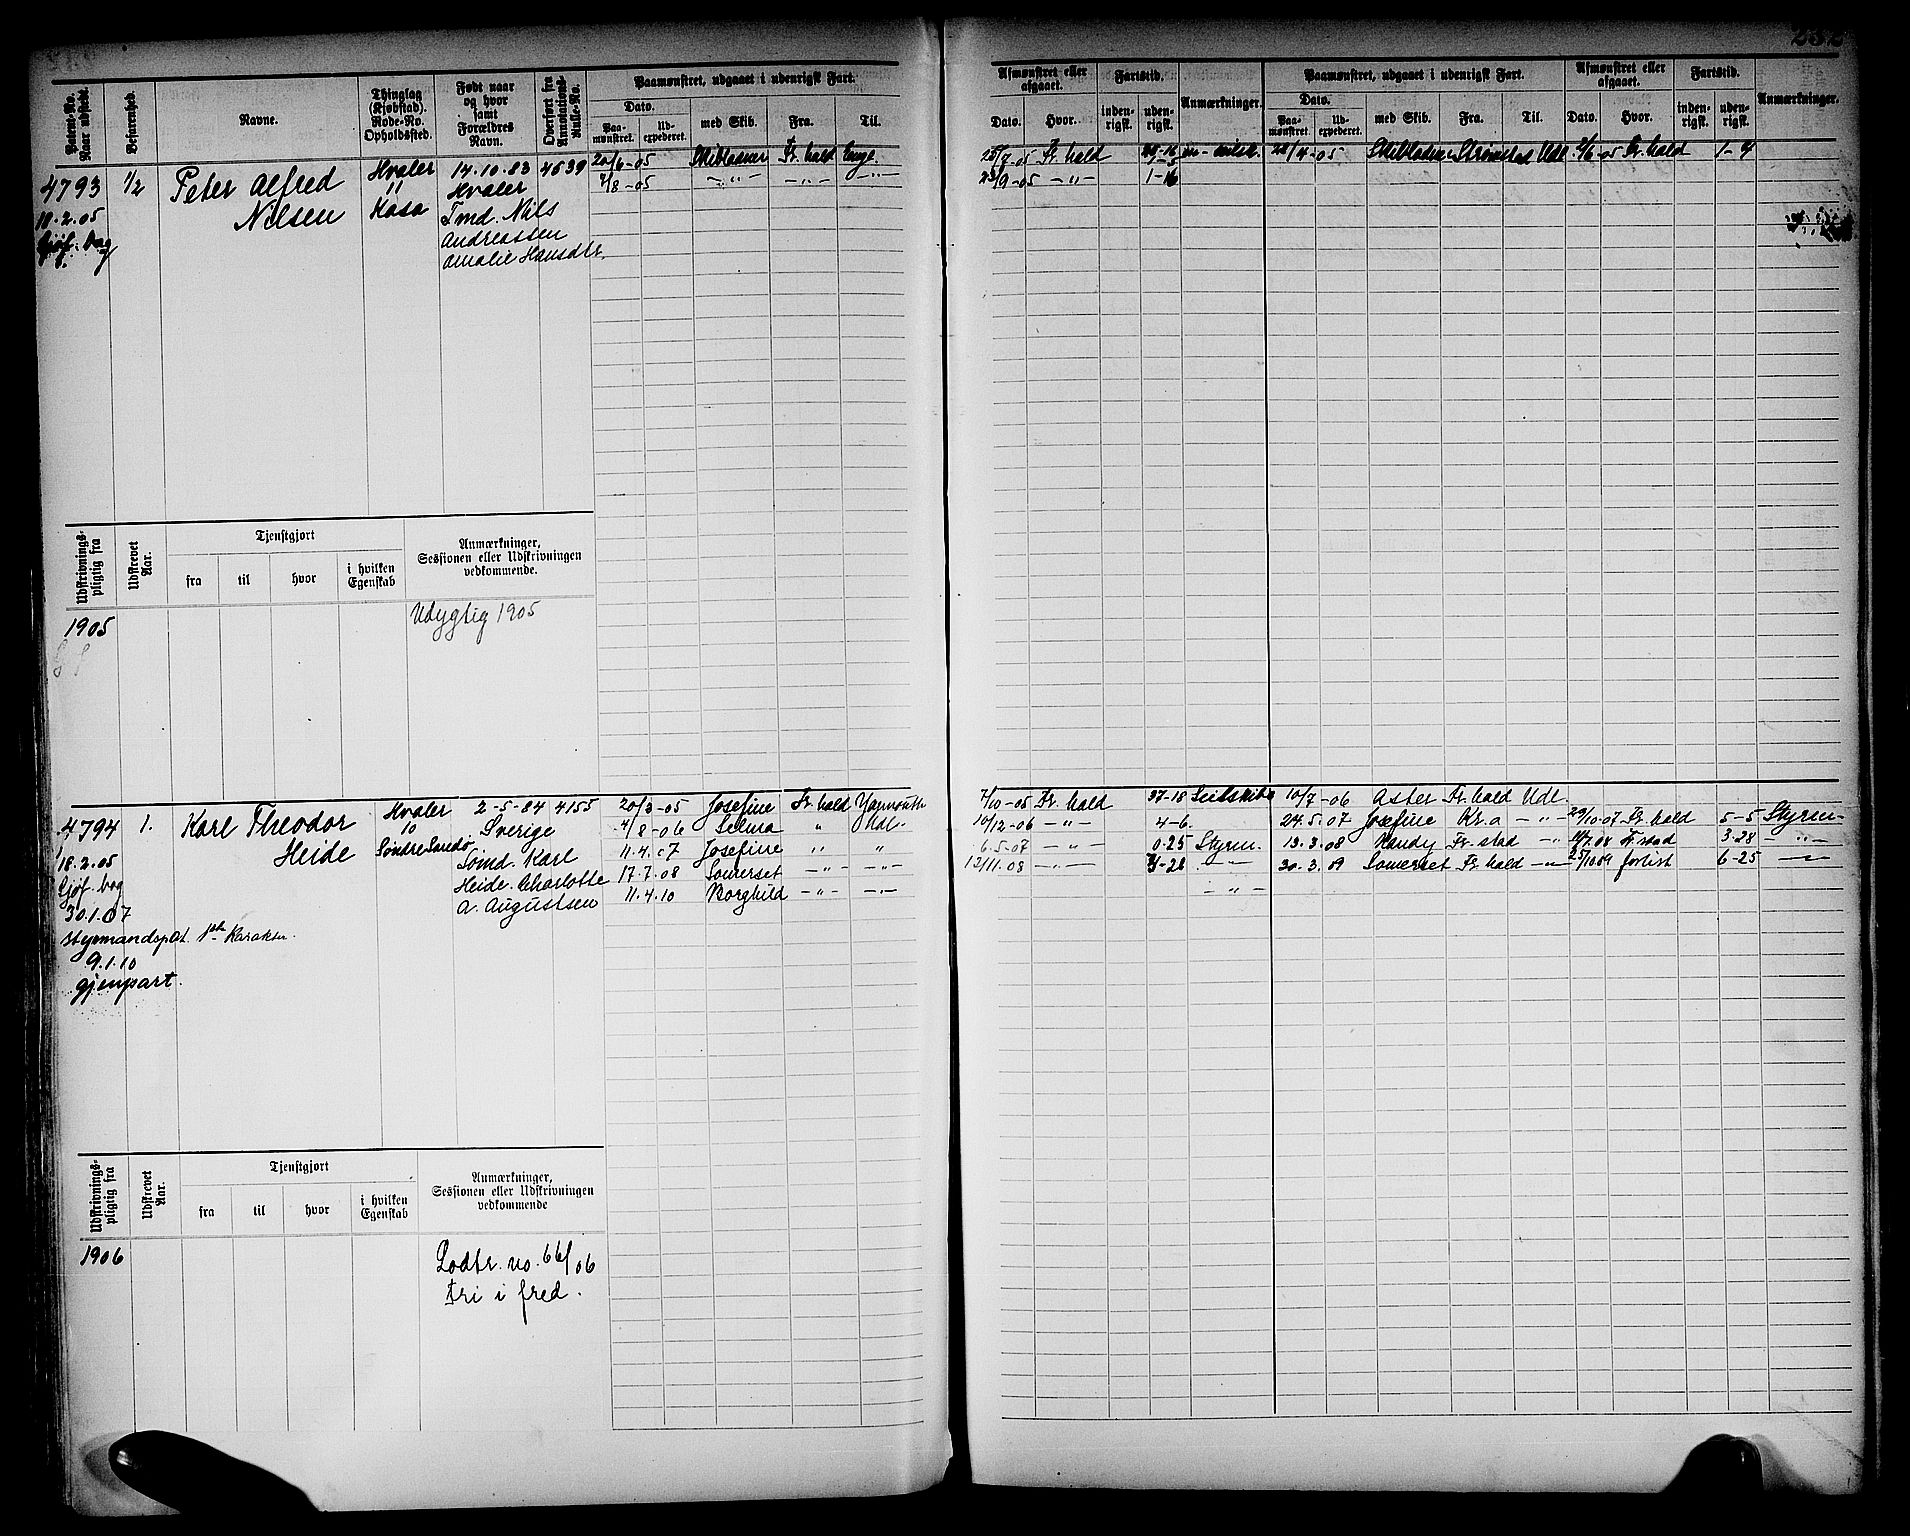 232
Patent-No. Naar udstedt.
Befarenhed.
Navne.
Thinglag (Kjøbstad). Rode-No. Opholdssted.
Født naar og hvor samt Forældres Navn.
Overført fra Annotations-Rulle-No.
Paamønstret, udgaaet i udenrigsk Fart.
Dato.
Paa-mønstret.
Ud-expederet.
med Skib.
Fra.
Til.
Afmønstret eller afgaaet.
Dato.
Hvor.
Fartstid.
inden-rigsk.
uden-rigsk.
Anmærkninger.
Paamønstret, udgaaet i udenrigsk Fart.
Dato.
Paa-mønstret.
Ud-expederet.
med Skib.
Fra.
Til.
Afmønstret eller afgaaet.
Dato.
Hvor.
Fartstid.
inden-rigsk.
uden-rigsk.
Anmærkninger.
4793
18.2.05
Gjøf. bag
1/2
Peter Alfred
Nilsen
Hvaler
11
Kasa
14.10.83
Hvaler
Tmd. Nils
Andreassen
Amalie Hansdtr.
4539
20/6-05 Skibladner Fr. hald Enge
7/8-05 -"- -"- -"-
Fr. hald
23/9-05 -"- 1-16
28/4-05 Skibladner Strømstad Udl 2/6-05 Fr. hald 1-4
Udskrivnings-pligtig fra
Udskrevet Aar.
Tjenstgjort
fra
til
hvor
i hvilken Egenskab
Anmærkninger,
Sessionen eller Udskrivningen
vedkommende.
1905
Udygtig 1905
4794
18.2.05
Gjøf. bag
30.1.07
styrmandspat. 1ste Karakter.
9.1.10
gjenpart.
1.
Karl Theodor
Heide
Hvaler
10
Søndre Sandø
2-5-84
Sverige
Sømd. Karl
Heide. Charlotte
A. Augustsen
4155
20/3-05 Josefine Fr. hald Yarmouth
4/8-06 Selma " Udl.
11.4.07 Josefine " "
17.7.08 Somerset -"- -"-
11.4.10 Borghild -"- -"-
7/10-05 Fr. hald 37-18 Seilskibs
10/12-06 -"- 4-6.
6.5.07 -"- 0.25 Styrm.
12/11.08 -"- -"-
-"-
10/7-06 Aster Fr. hald Udl.
24.5.07 Josefine Kr.a -"- 29/10-07 Fr. hald 5-5 Styrm-
13.3.08 Handy Fr. stad -"- Fr. stad 3.28 -"-
30.3.09 Somerset Fr. hald -"- 25/10 09 forlist 6-25 -"-
Udskrivnings-pligtig fra
Udskrevet Aar.
Tjenstgjort
fra
til
hvor
i hvilken Egenskab
Anmærkninger,
Sessionen eller Udskrivningen
vedkommende
1906
Lodtr. no. 66/06
fri i fred.